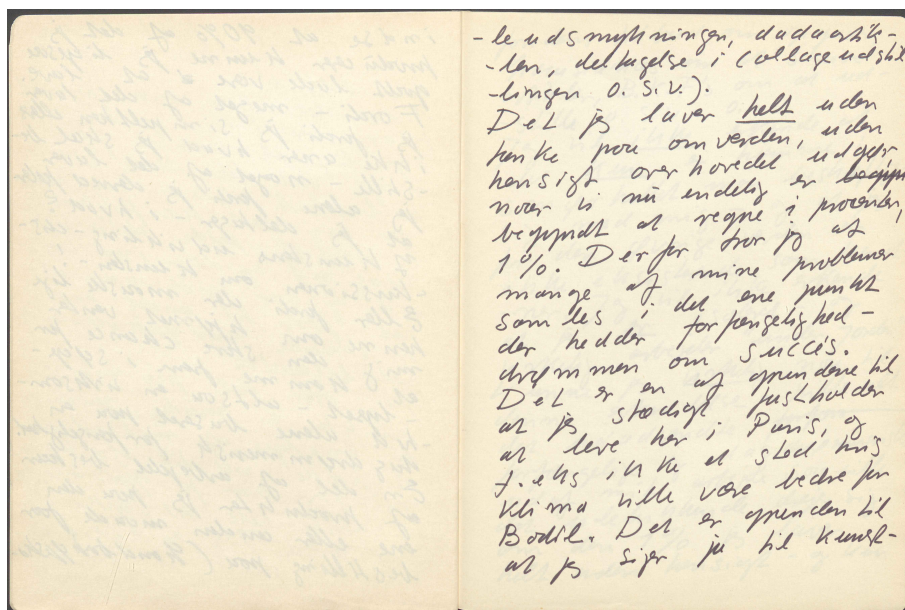 -le udsmykningen, dadaartik-
-len, deltagelse i collageudstil
-lingen o.s.v.).
Det jeg laver helt uden
tanke paa omverden, uden
hensigt over hovedet udgør,
naar vi nu endelig er
begyndt at regne i procenter,
1%. Derfor tror jeg at
mange af mine problemer
samles i det ene punkt
der hedder forfængelighed -
drømmen om succes.
Det er en af grundene til
at jeg stædigt fastholder
at leve her i Paris, og
f.eks ikke et sted hvis
klima ville være bedre for
Bodil. Det er grunden til
at jeg siger ja til Kunst-